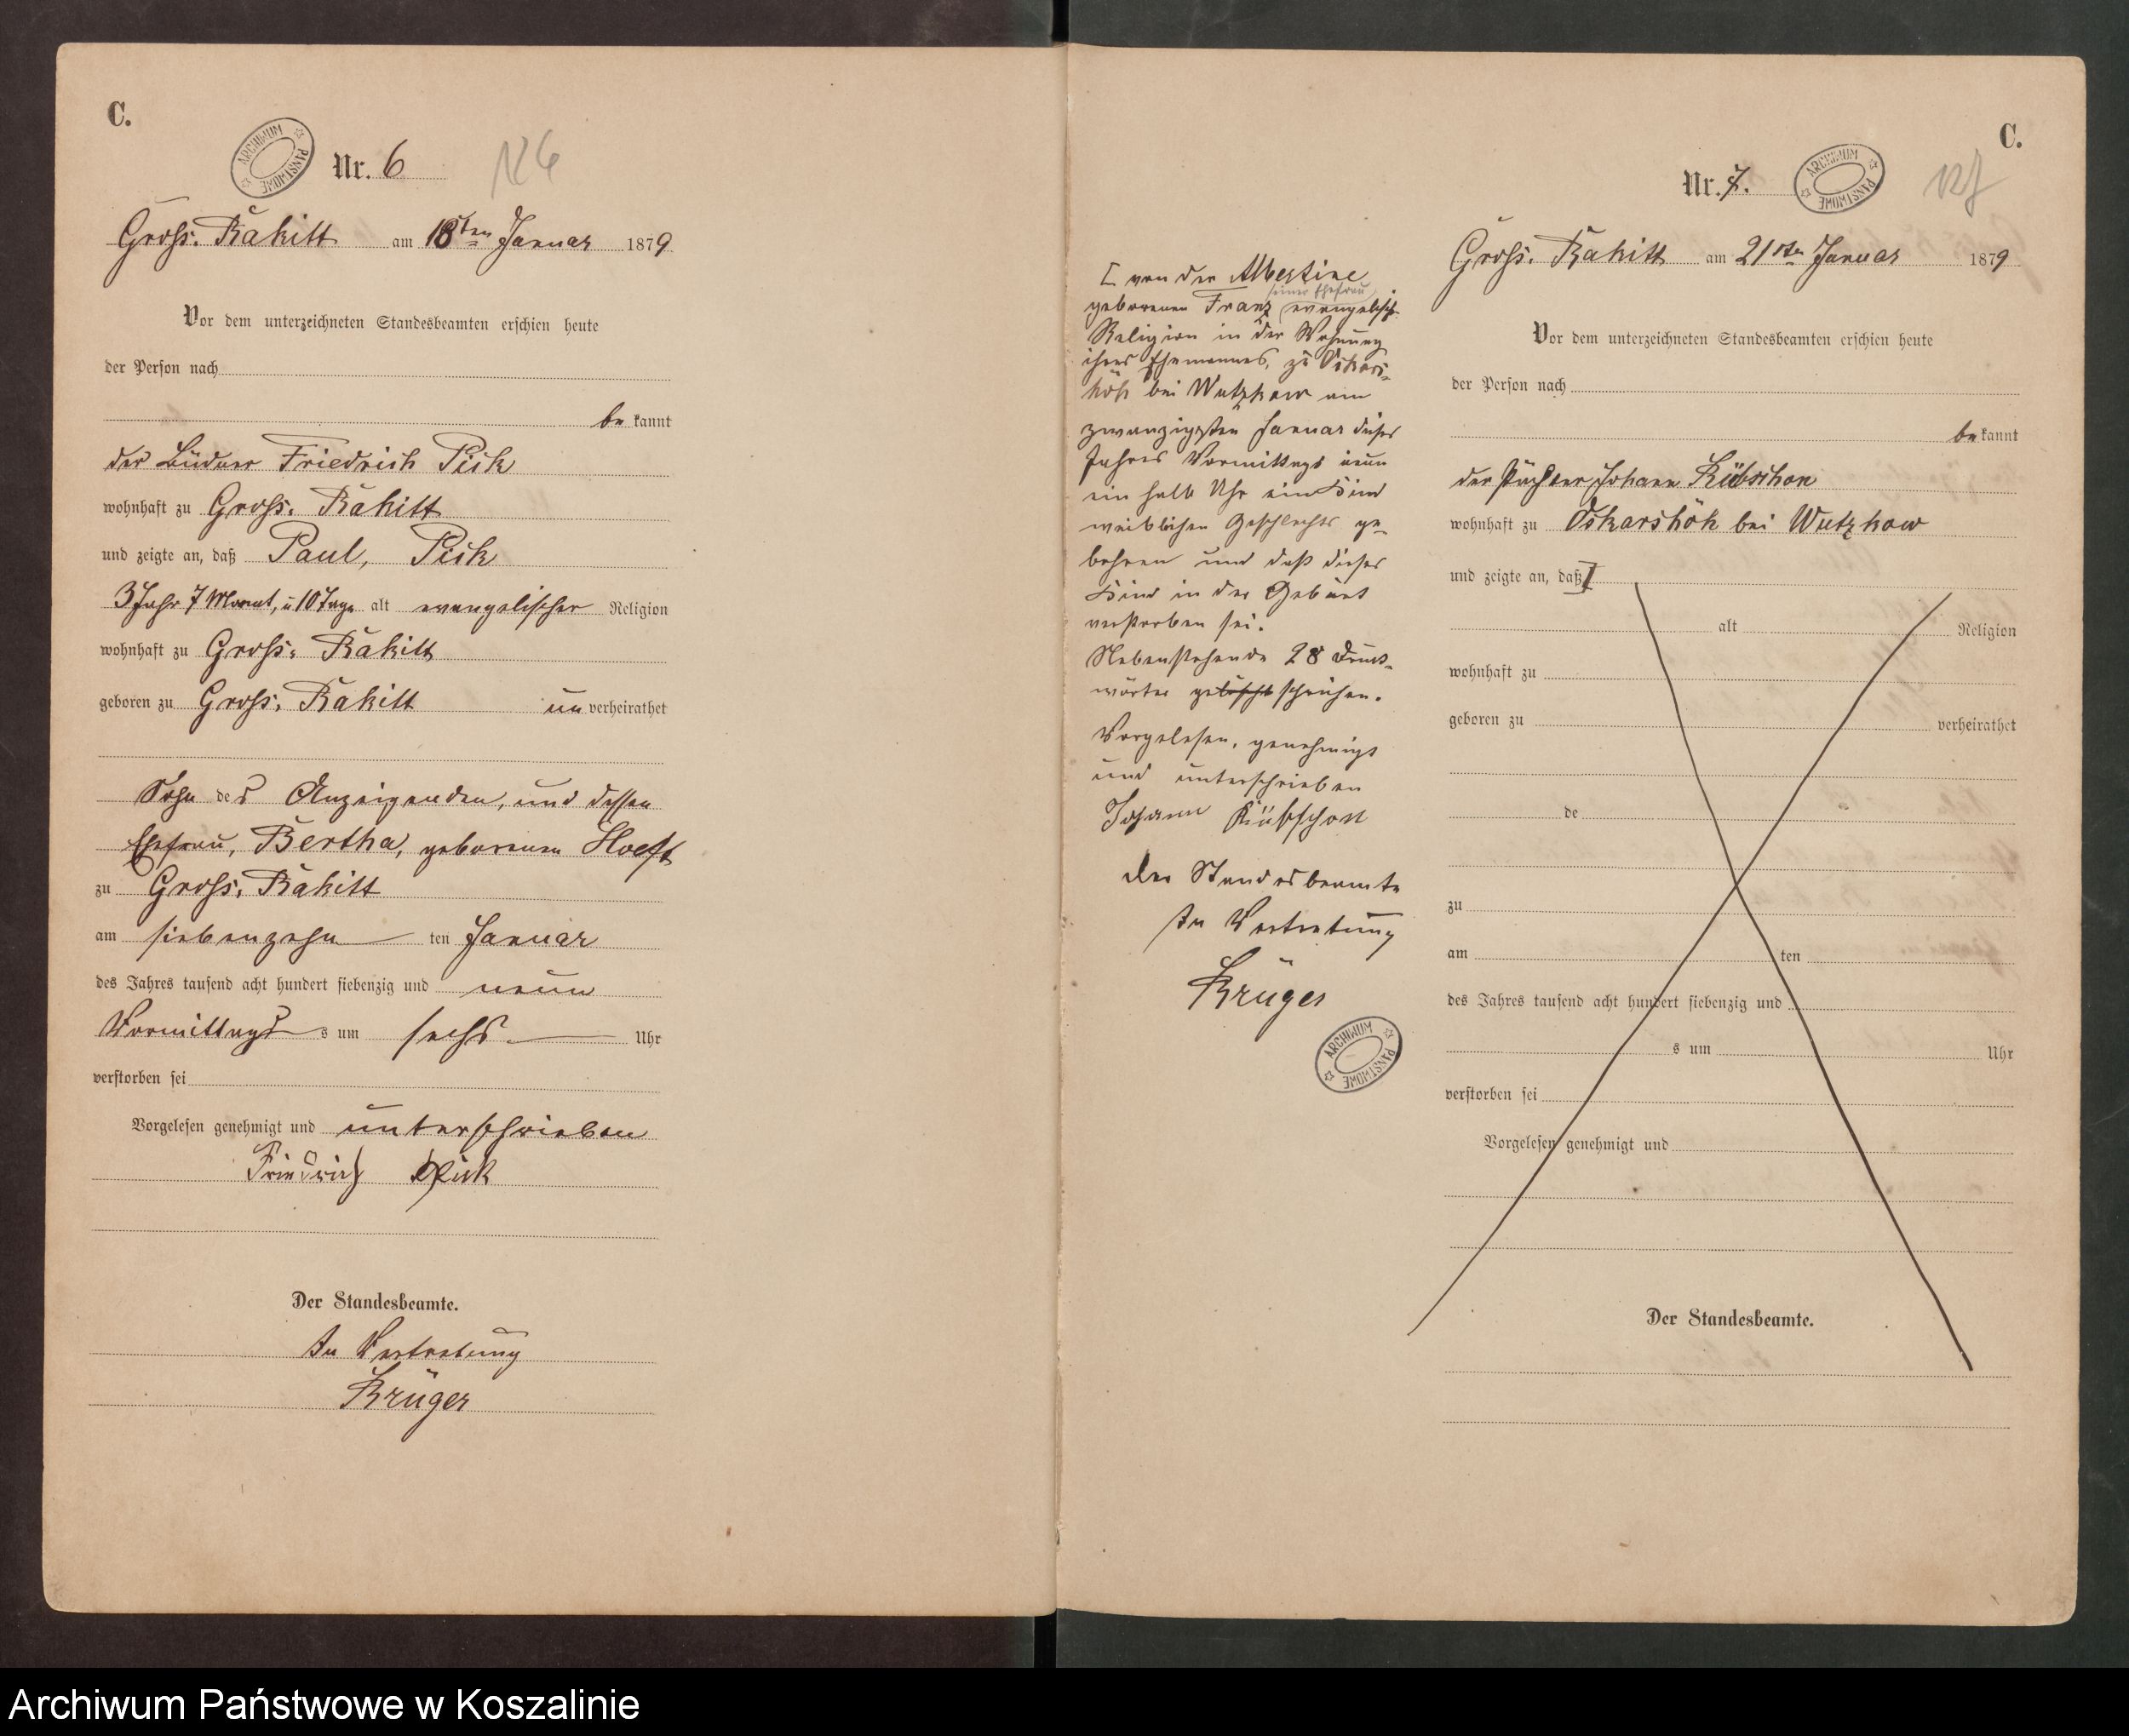 C.
ARCHIWUM PAŃSTWOWE
Nr. 6
N 6
Gross. Rakitt am 18ten Januar 1879
Vor dem unterzeichneten Standesbeamten erschien heute
der Person nach
be kannt
der Büdner Friedrich Pick
wohnhaft zu Gross. Rakitt
und zeigte an, daß Paul, Pick
3 Jahr 7 Monat, u 10 Tage alt evangelischer Religion
wohnhaft zu Gross. Rakitt
geboren zu Gross. Rakitt un verheirathet
Sohn des Anzeigenden, und dessen
Ehefrau, Bertha, geborenen Hoeft
zu Gross. Rakitt
am siebenzehn ten Januar
des Jahres tausend acht hundert siebenzig und neun
Vormittags s um sechs Uhr
verstorben sei
Vorgelesen genehmigt und unterschrieben
Friedrich Pick
Der Standesbeamte.
In Vertretung
Krüger
C.
Nr. 7.
ARCHIWUM PAŃSTWOWE
Gross. Rakitt am 21ten Januar 1879
Vor dem unterzeichneten Standesbeamten erschien heute
der Person nach
be kannt
der Pächter Johann Kübschon
wohnhaft zu Oskarshöh bei Wutzkow
und zeigte an, daß
alt Religion
wohnhaft zu
geboren zu verheirathet
de
zu
am ten
des Jahres tausend acht hundert siebenzig und
s um Uhr
verstorben sei
Vorgelesen genehmigt und
Der Standesbeamte.
von der Albertine
seiner Ehefrau
geborenen Franz evangelisch
Religion in der Wohnung
ihres Ehemannes, zu Oskars-
höh bei Wutzkow am
zwanzigsten Januar dieses
Jahres Vormittags neun
ein halb Uhr ein Kind
weiblichen Geschlechts ge-
bohren und daß dieses
Kind in der Geburt
verstorben sei.
Nebenstehende 28 Druck-
wörter gelöscht strichen.
Vorgelesen, genehmigt
und unterschrieben
Johann Kübschon
Der Standesbeamte
In Vertretung
Krüger
ARCHIWUM PAŃSTWOWE
Archiwum Państwowe w Koszalinie